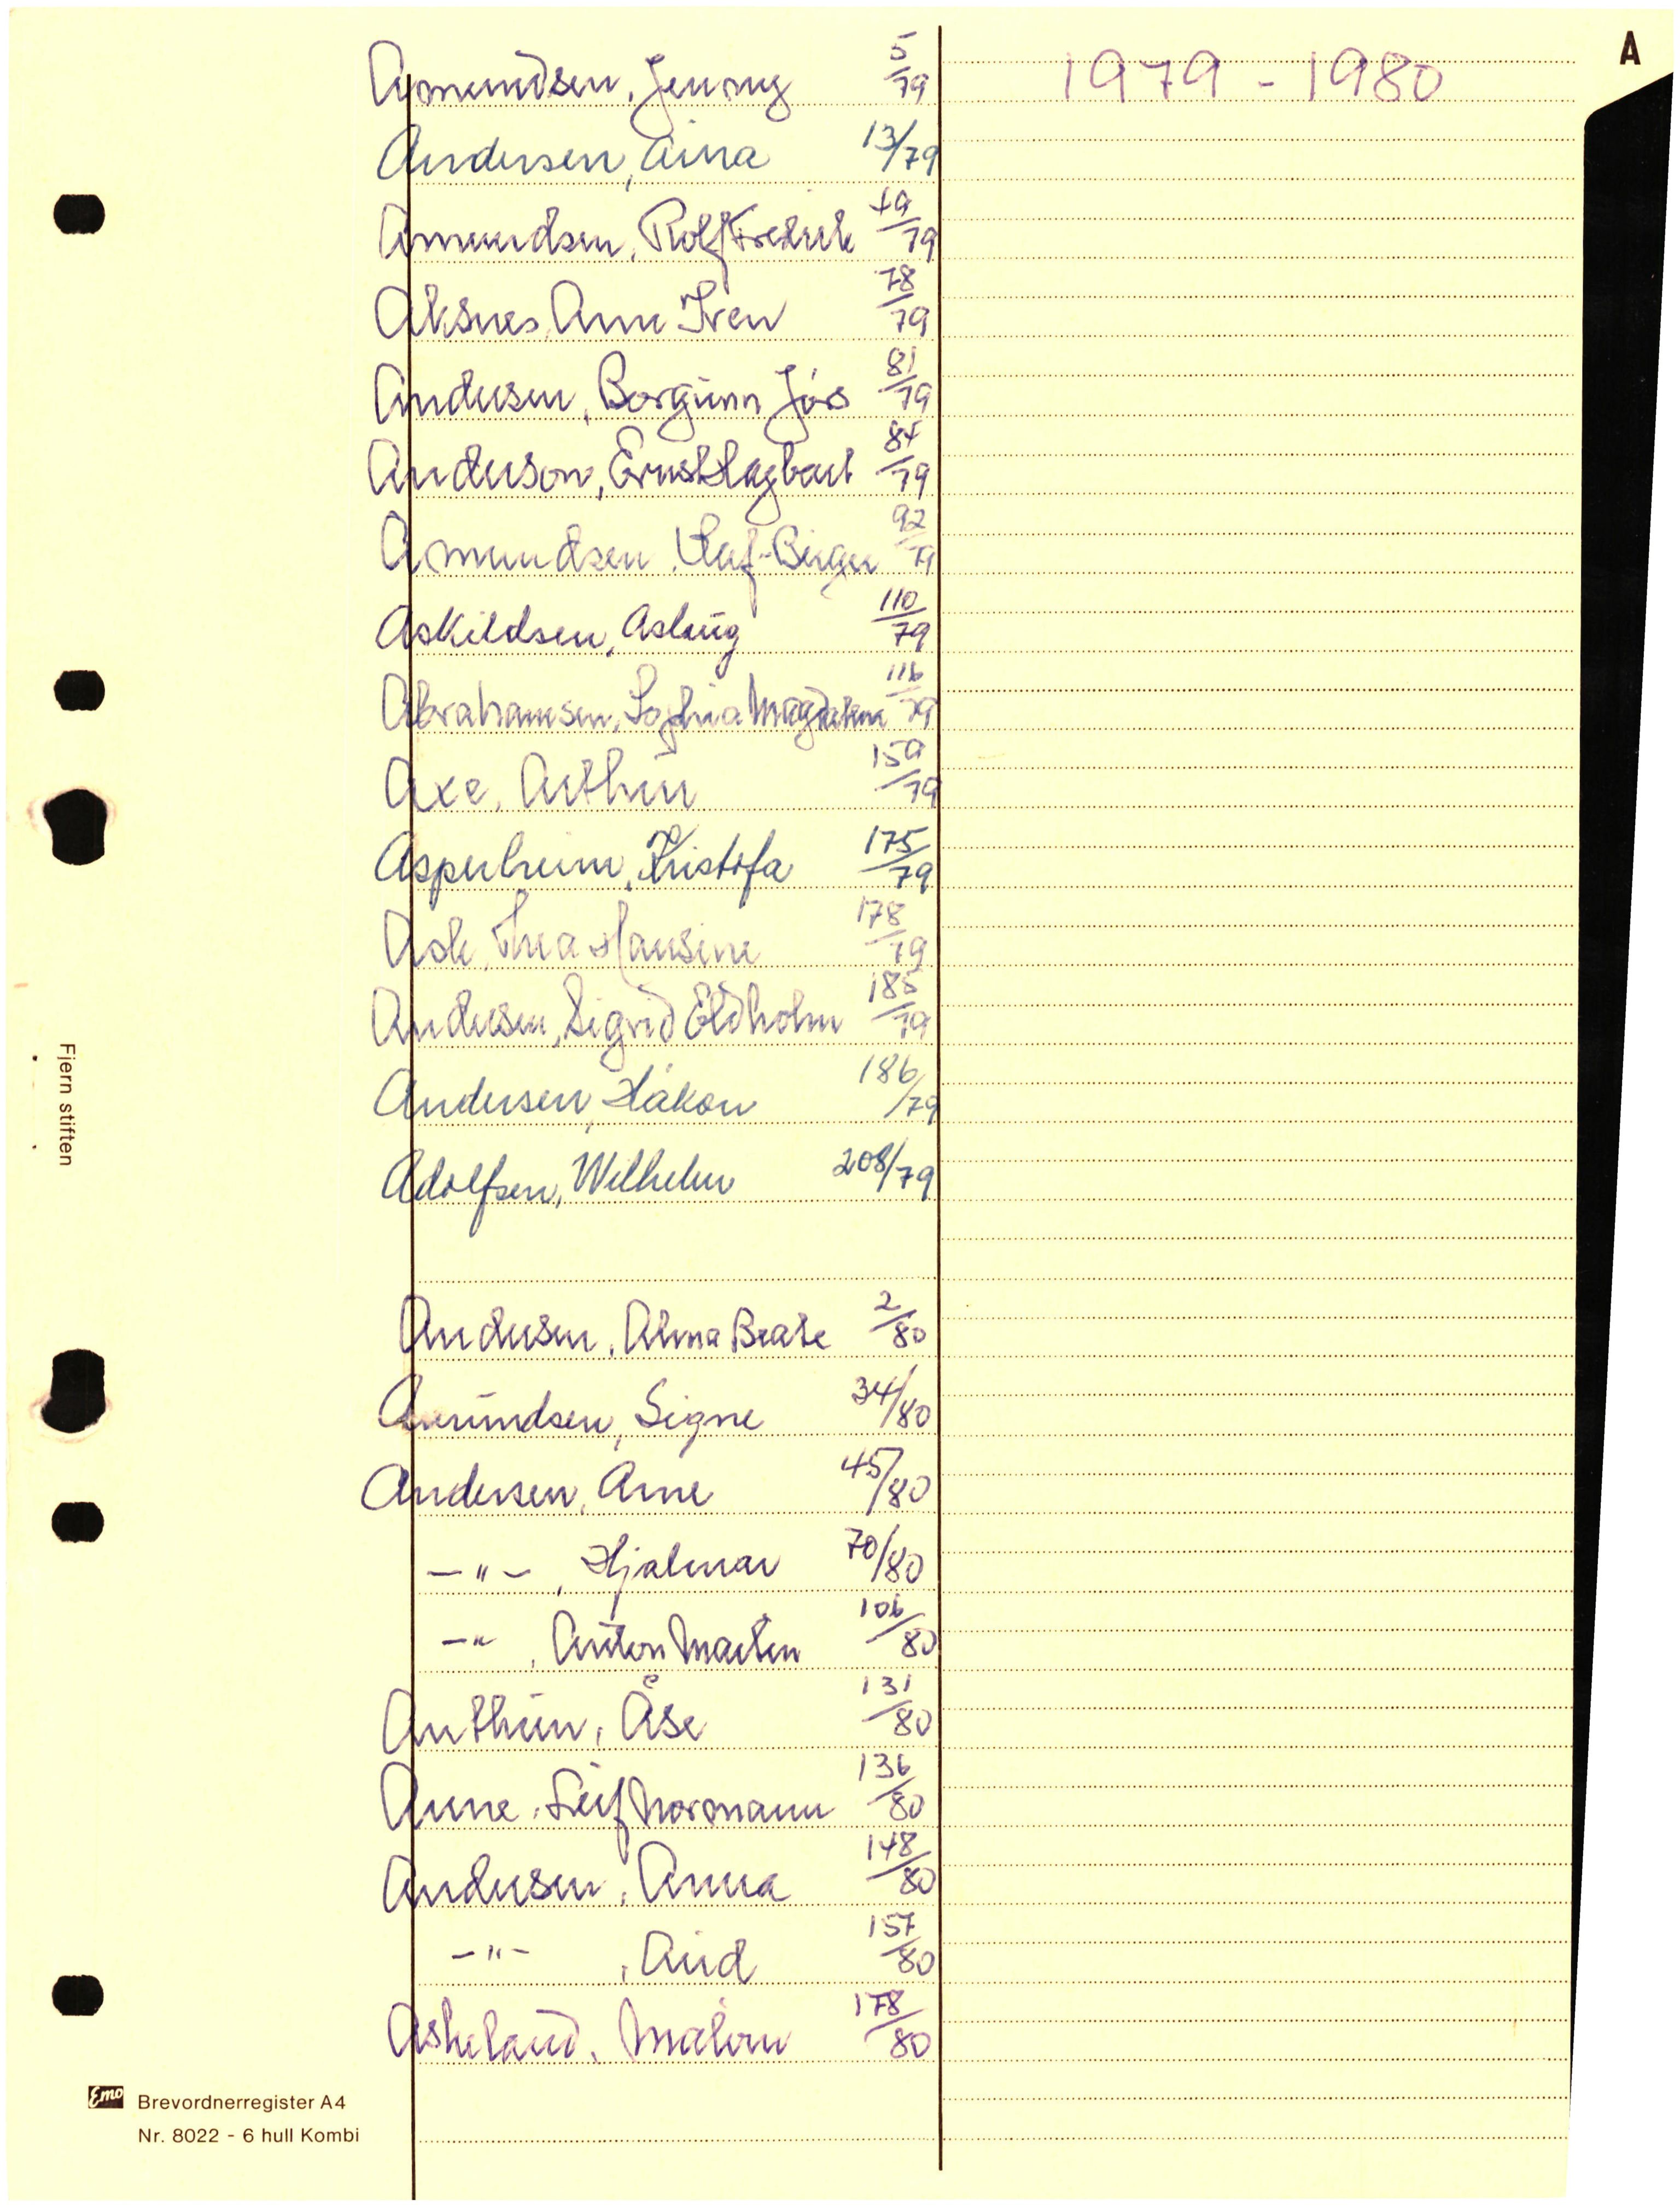 A
1979 - 1980
Amundsen, Jenny 5/79
Andersen, Aina 13/79
Amundsen, Rolf Fredrik 49/79
Aksnes, Anne Iren 78/79
Andersen, Borgunn 81/79
Anderson, Ernst Dagbart 84/79
Amundsen, Olaf-Birger 92/79
Askildsen, Aslaug 110/79
Abrahamsen, Sophia Magdalene 116/79
Axe, Arthur 159/79
Asperheim, Kristofa 175/79
Ask, Thea Hansine 178/79
Andersen, Sigrid Eldholm 185/79
Andersen, Håkon 186/79
Adolfsen, Wilhelm 208/79
Andersen, Alma Beate 2/80
Amundsen, Signe 34/80
Andersen, Arne 45/80
-"-, Hjalmar 70/80
-"-, Anton Martin 106/80
Anthun, Åse 131/80
Anne, Leif Normann 136/80
Andersen, Anna 148/80
-"-, Aud 157/80
Askeland, 178/80
Fjern stiften
Emo Brevordnerregister A4
Nr. 8022 - 6 hull Kombi